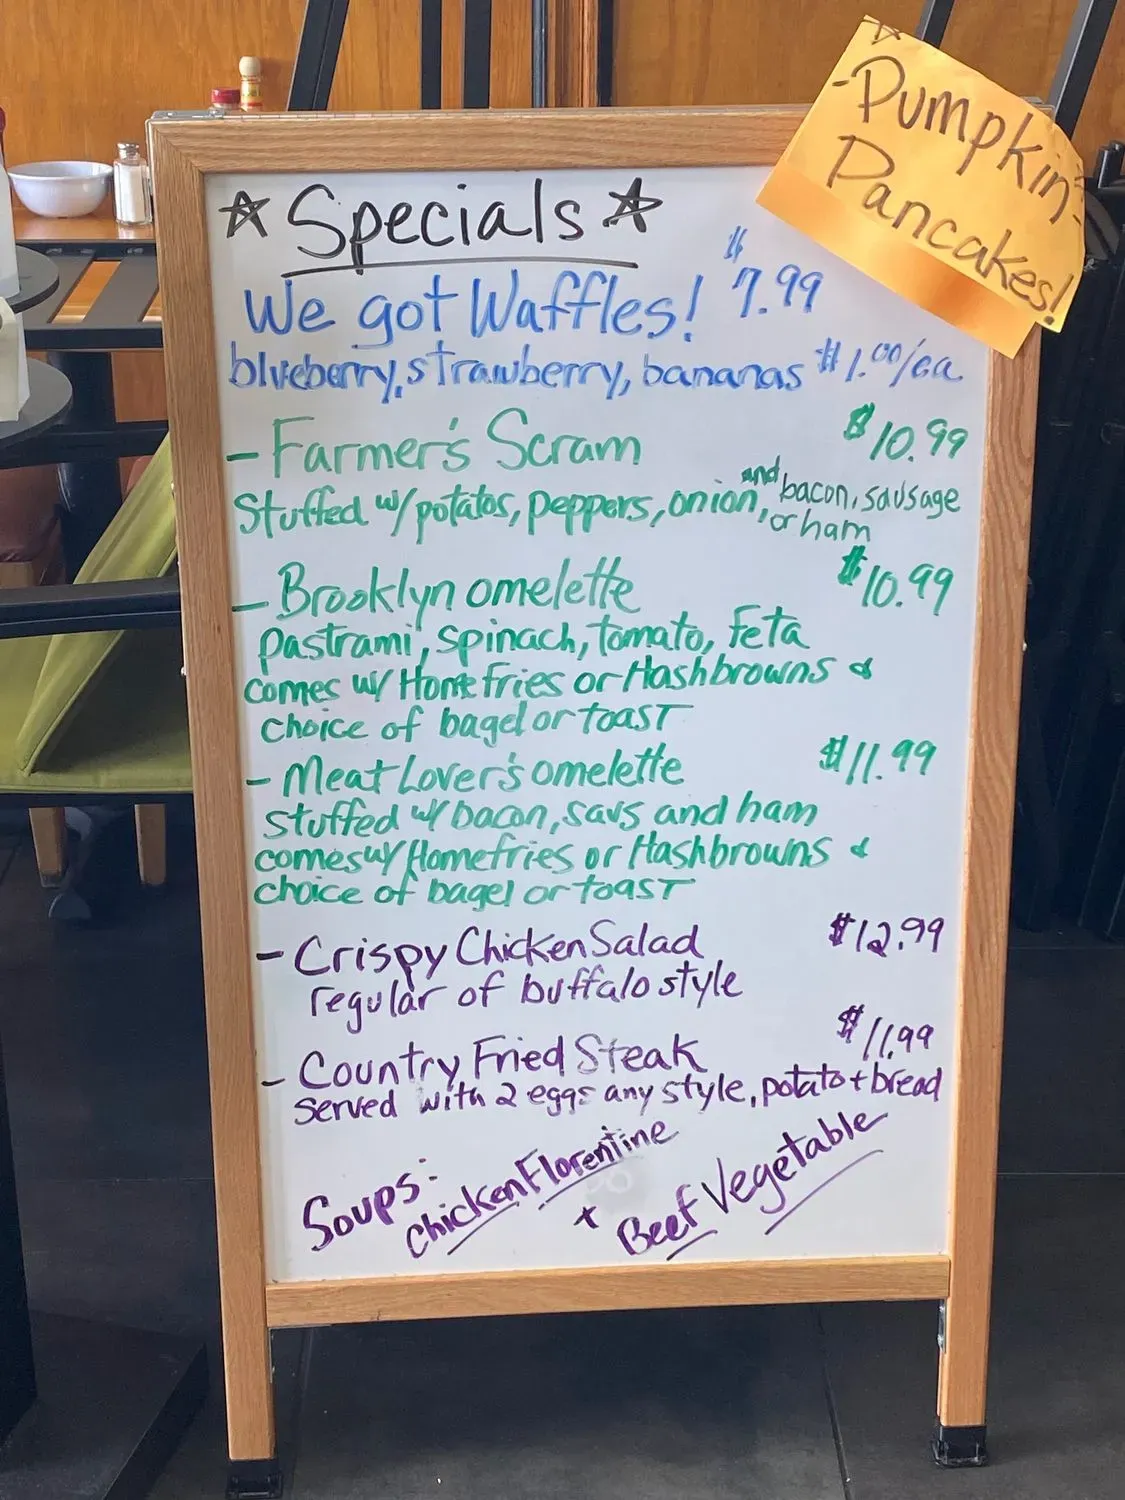 -Pumpkin-
Pancakes!
☆ Specials ☆
We got Waffles! $7.99
blueberry, strawberry, bananas $1.00/ea
- Farmer's Scram $10.99
Stuffed w/ potatos, peppers, onion, and bacon, sausage
or ham
- Brooklyn omelette $10.99
Pastrami, spinach, tomato, feta
comes w/ Homefries or Hashbrowns &
choice of bagel or toast
- Meat Lover's omelette $11.99
stuffed w/ bacon, saus and ham
comes w/ Homefries or Hashbrowns &
choice of bagel or toast
- Crispy Chicken Salad $12.99
regular of buffalo style
- Country Fried Steak $11.99
served with 2 eggs any style, potato + bread
Soups: Chicken Florentine
+ Beef Vegetable